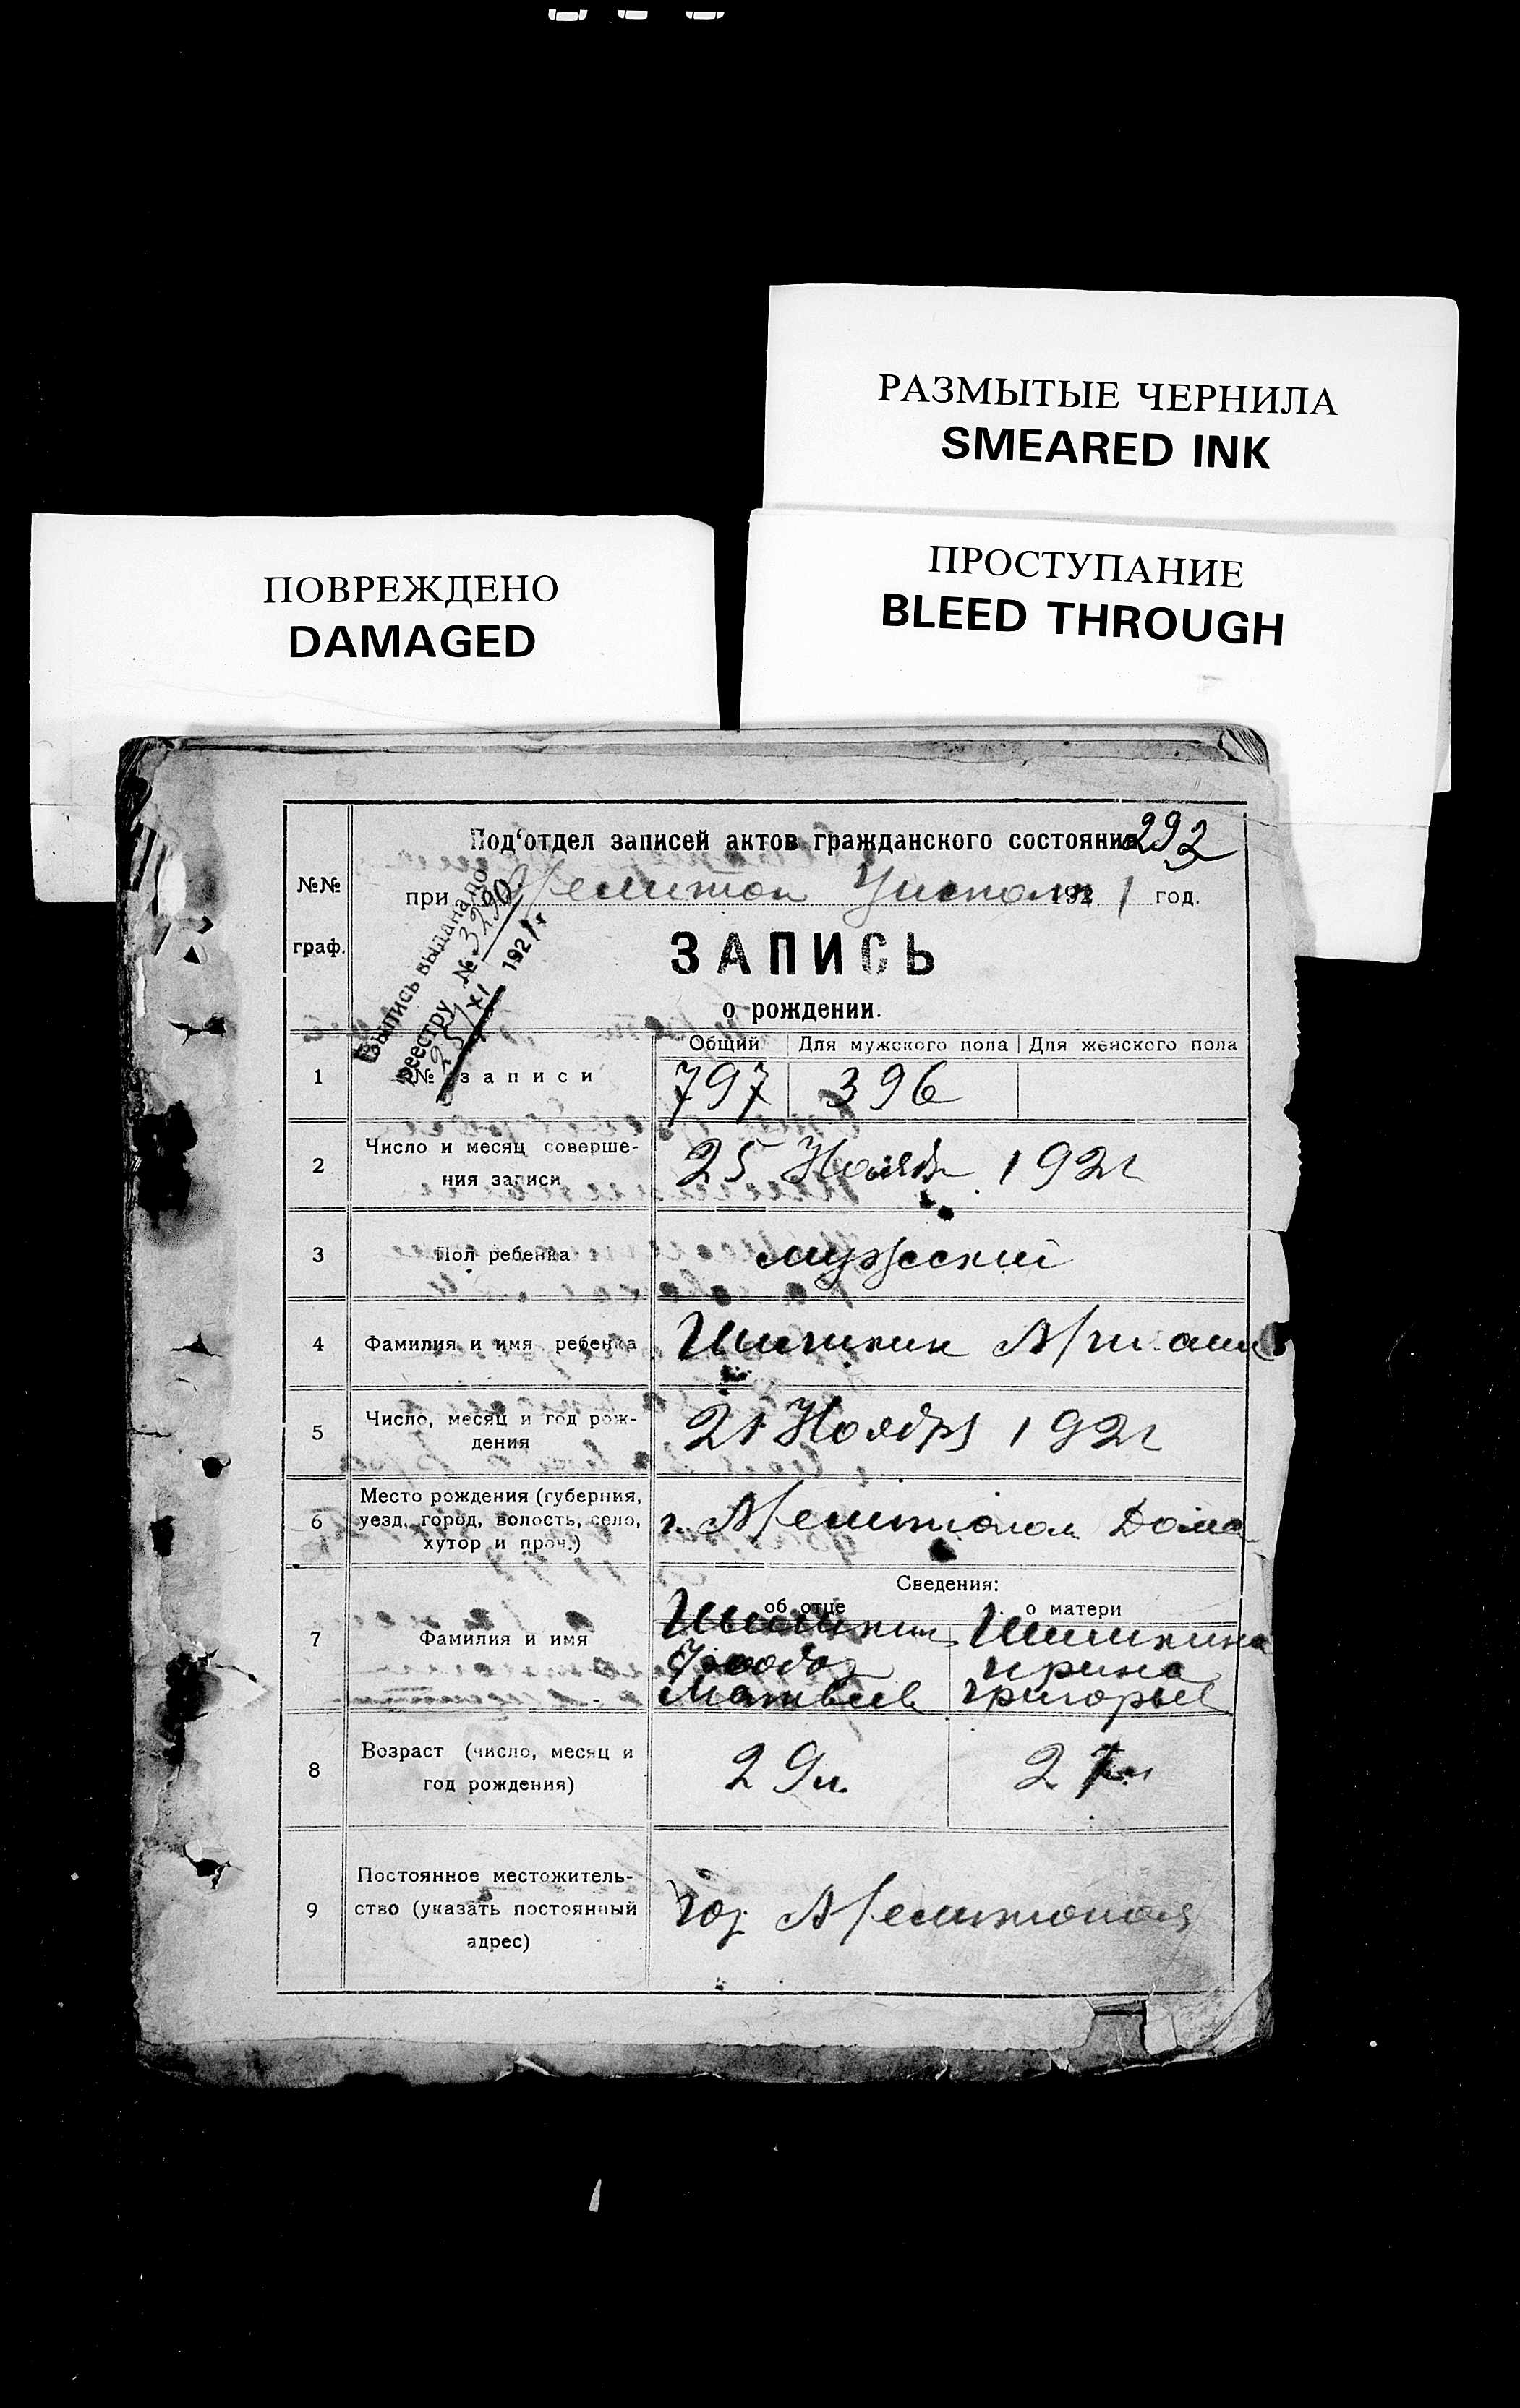 РАЗМЫТЫЕ ЧЕРНИЛА
SMEARED INK
ПРОСТУПАНИЕ
BLEED THROUGH
ПОВРЕЖДЕНО
DAMAGED
Под‘отдел записей актов гражданского состояния 292
№№ граф.
при Мелитоп Уисполк 1921 год.
Выпись выдана по
реестру № 3290
25/XI 1921 г.
ЗАПИСЬ
о рождении.
Общий Для мужского пола Для женского пола
1 № записи 797 396
2 Число и месяц соверше-
ния записи 25 Ноября 1921
3 Пол ребенка мужеский
4 Фамилия и имя ребенка Шишкин
5 Число, месяц и год рож-
дения 21 Ноября 1921
6 Место рождения (губерния,
уезд, город, волость, село,
хутор и проч.) г. Мелитополь Дома
Сведения:
об отце о матери
7 Фамилия и имя Шишкин Шишкина
Ирина
Матвеев Григорьев
8 Возраст (число, месяц и
год рождения) 29 л. 27 л
9 Постоянное местожитель-
ство (указать постоянный
адрес) гор Мелитополь